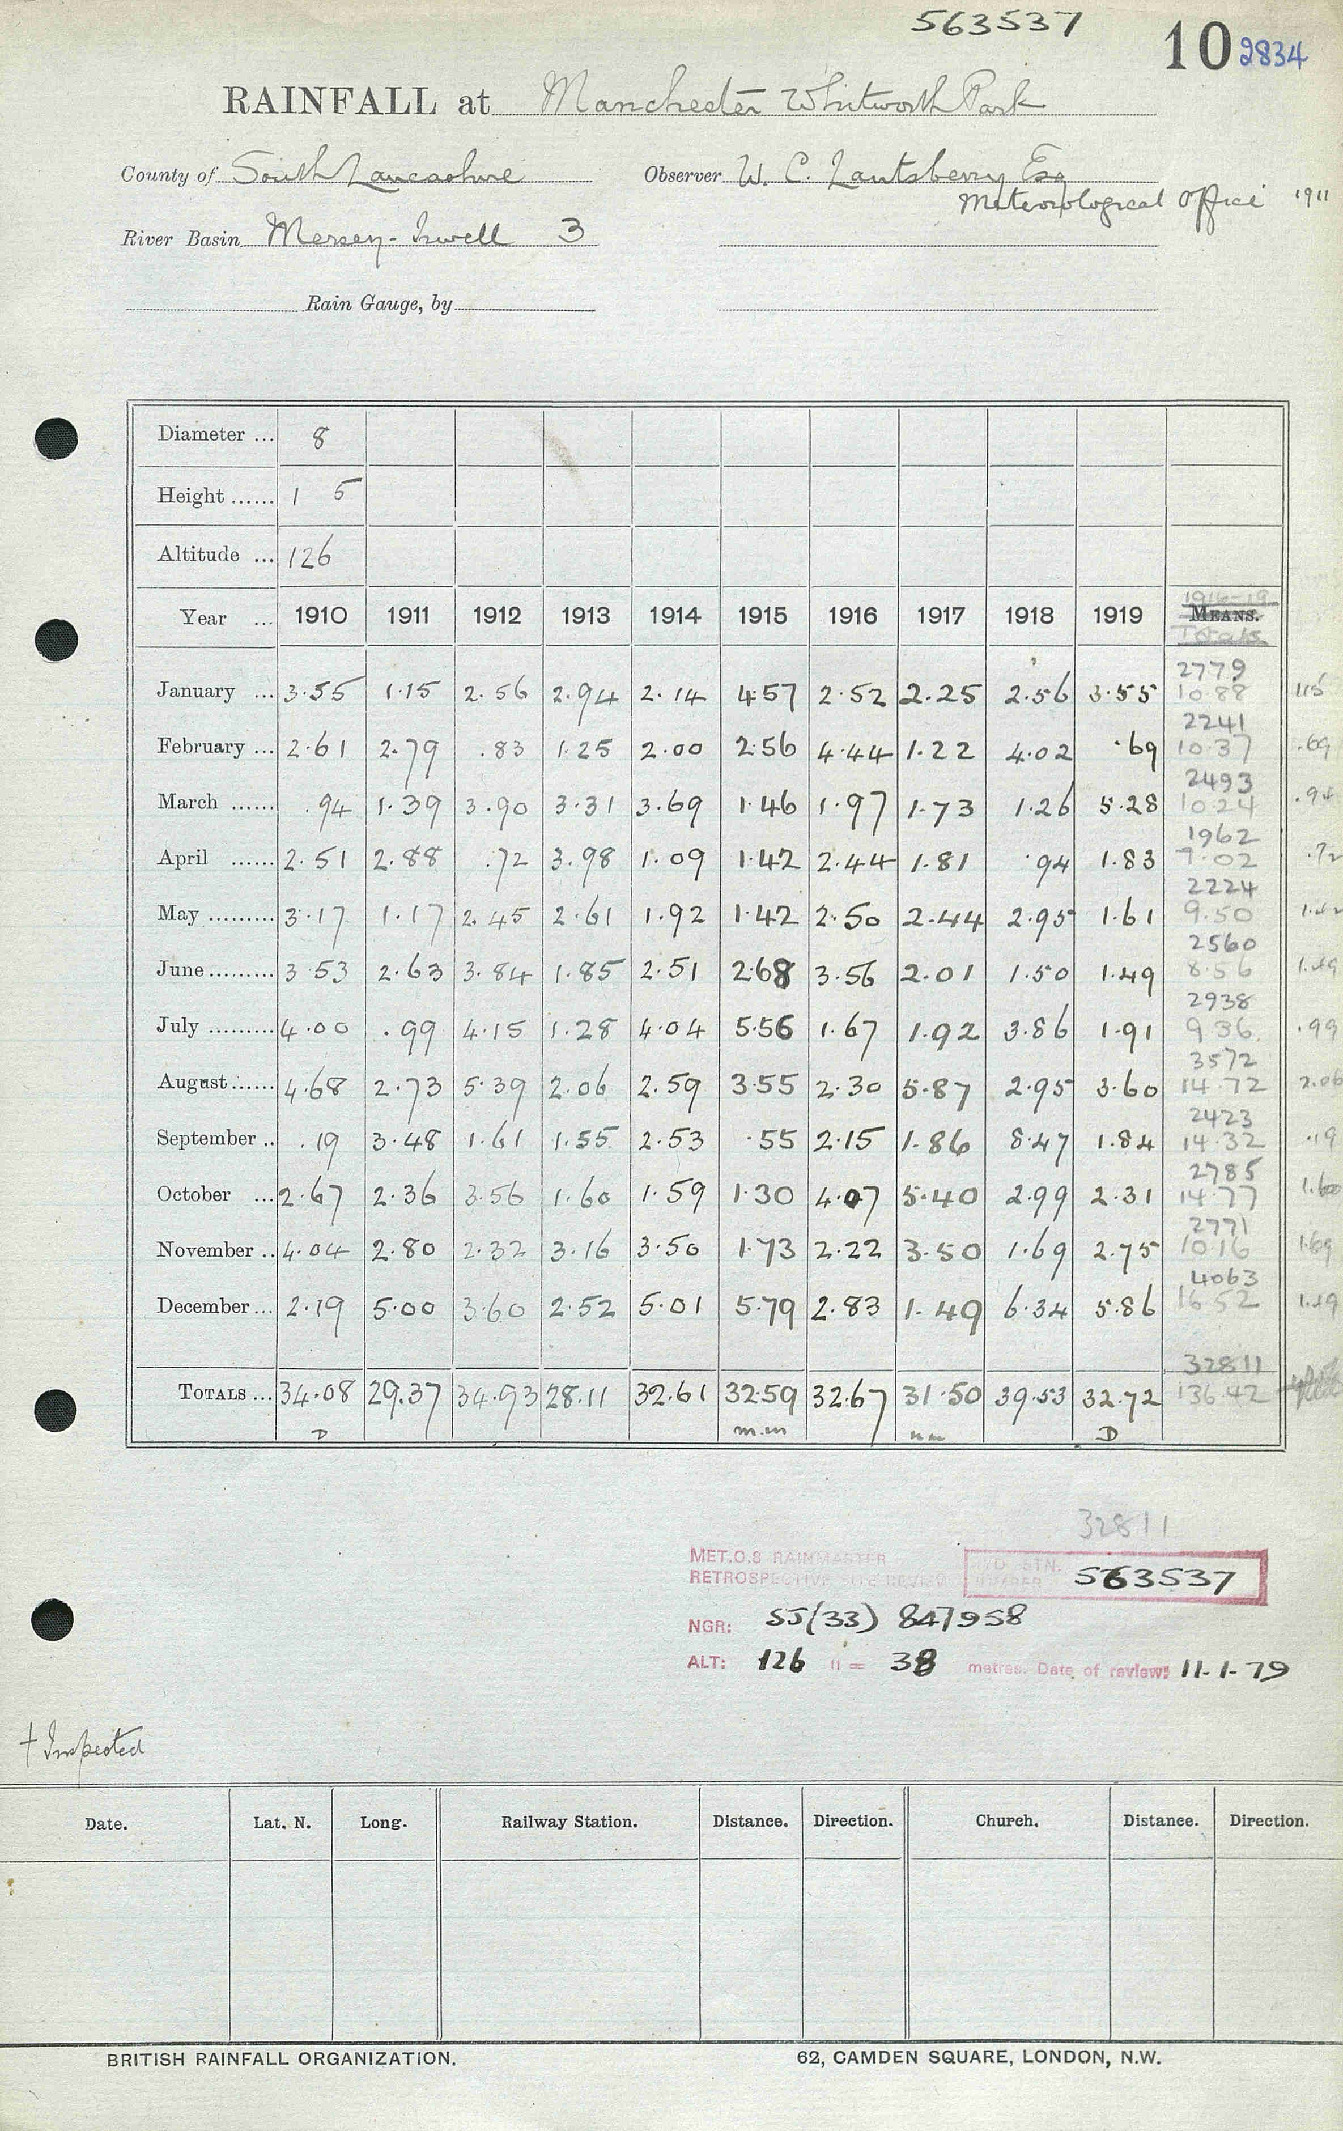 563537
10 2834
RAINFALL at Manchester Whitworth Park
County of South Lancashire Observer W. C. Lautsberry Esq
Meteorological Office 1911
River Basin Mersey-Irwell 3
Rain Gauge, by
Diameter ... 8
Height ...... 1 5
Altitude ... 126
1916-19
Year ... 1910 1911 1912 1913 1914 1915 1916 1917 1918 1919 MEANS.
Totals
2779
January ... 3.55 1.15 2.56 2.94 2.14 4.57 2.52 2.25 2.56 3.55 10.88 1.15
2241
February ... 2.61 2.79 .83 1.25 2.00 2.56 4.44 1.22 4.02 .69 10.37 .69
2493
March ...... .94 1.39 3.90 3.31 3.69 1.46 1.97 1.73 1.26 5.28 10.24 .94
1962
April ...... 2.51 2.88 .72 3.98 1.09 1.42 2.44 1.81 .94 1.83 7.02 .72
2224
May ......... 3.17 1.17 2.45 2.61 1.92 1.42 2.50 2.44 2.95 1.61 9.50 1.42
2560
June ......... 3.53 2.63 3.84 1.85 2.51 2.68 3.56 2.01 1.50 1.49 8.56 1.49
2938
July ......... 4.00 .99 4.15 1.28 4.04 5.56 1.67 1.92 3.86 1.91 9.36 .99
3572
August ...... 4.68 2.73 5.39 2.06 2.59 3.55 2.30 5.87 2.95 3.60 14.72 2.06
2423
September .. .19 3.48 1.61 1.55 2.53 .55 2.15 1.86 8.47 1.84 14.32 .19
2785
October ... 2.67 2.36 3.56 1.60 1.59 1.30 4.07 5.40 2.99 2.31 14.77 1.60
2771
November .. 4.04 2.80 2.32 3.16 3.50 1.73 2.22 3.50 1.69 2.75 10.16 1.69
4063
December ... 2.19 5.00 3.60 2.52 5.01 5.79 2.83 1.49 6.34 5.86 16.52 1.49
32811
TOTALS ... 34.08 29.37 34.93 28.11 32.61 32.59 32.67 31.50 39.53 32.72 136.42
D m.m D
32811
MET.O.8 RAINMASTER
RETROSPECTIVE SITE REVIEW
STN. 563537
NGR: SJ(33) 847958
ALT: 126 ft = 38 metres. Date of review: 11.1.79
† Inspected
Date. Lat. N. Long. Railway Station. Distance. Direction. Church. Distance. Direction.
BRITISH RAINFALL ORGANIZATION. 62, CAMDEN SQUARE, LONDON, N.W.